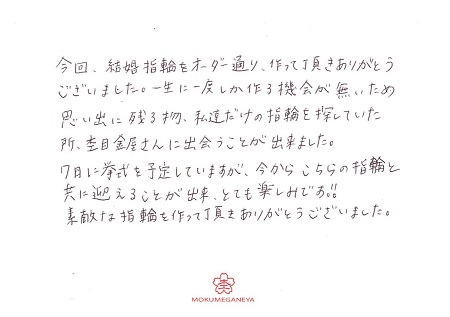 今回、結婚指輪をオーダー通り、作って頂きありがとう
ございました。一生に一度しか作る機会が無いため
思い出に残る物、私達だけの指輪を探していた
所、杢目金屋さんに出会うことが出来ました。
7月に挙式を予定していますが、今からこちらの指輪と
共に迎えることが出来、とても楽しみです!!
素敵な指輪を作って頂きありがとうございました。
MOKUMEGANEYA